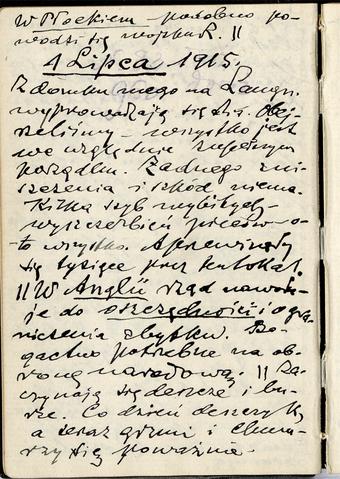 W Płockiem – podobno po-
wodzi się wojsku R. ||
1 Lipca 1915.
Z domku mego na Langi.
wyprowadzają się d.i. Obej-
rzeliśmy – wszystko jest
we względnie zupełnym
porządku. Żadnego zni-
szczenia i szkód niema.
Kilka szyb wybitych –
wyszczerbień pieców – o-
to wszystko. A przewinęły
się tysiące przez ten lokal.
|| W Anglii rząd nawołu-
je do oszczędności i ogra-
niczenia zbytku. Bo-
gactwo potrzebne na ob-
ronę narodową. || Za-
czynają się deszcze i bu-
rze. Co dzień deszczyk,
a teraz grzmi i chmu-
rzy się poważnie.